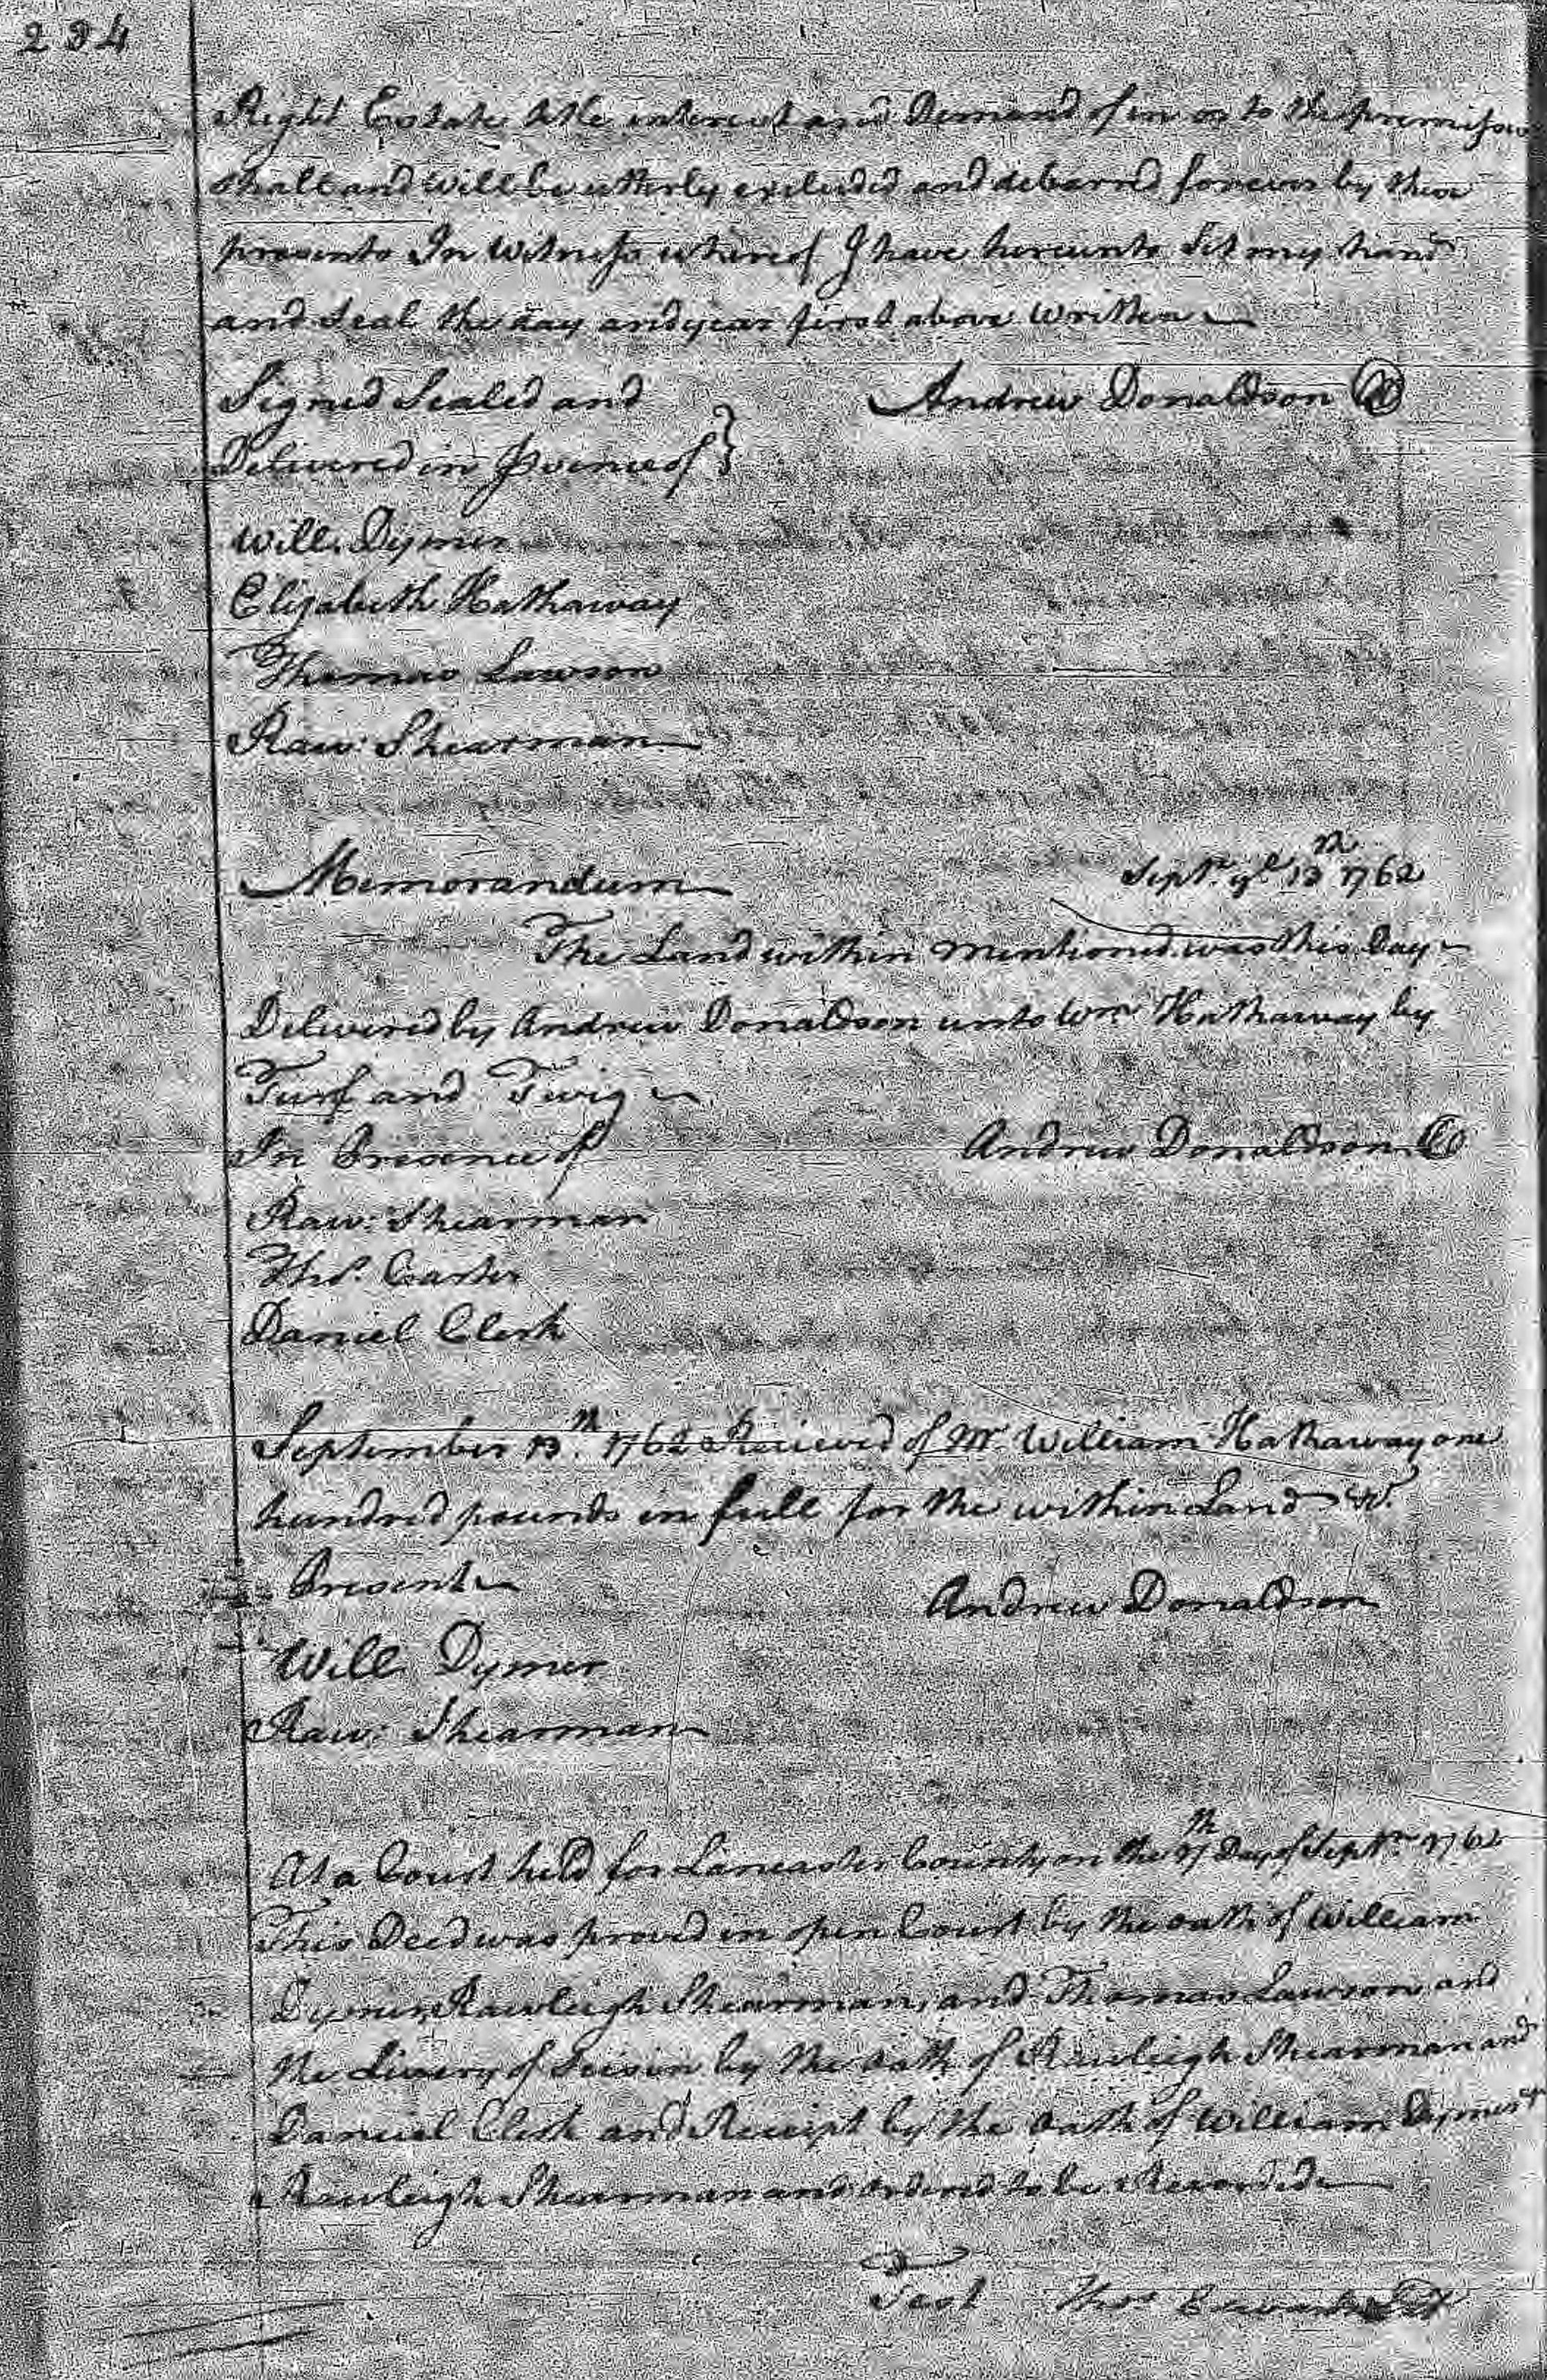 234
Right Estate title interest and Demand of in or to the premisses
shall and will be utterly excluded and debarrd forever by these
presents In Witness whereof I have hereunto Set my hand
and Seal the day and year first above written
Signed Sealed and
Andrew Donaldson
Delivered in Presence of }
Will. Dymer
Elizabeth Hathaway
Thomas Lawson
Raw: Shearman
Memorandum
Septr. ye 13th 1762
The Land within mentioned was this Day
Delivered by Andrew Donaldson unto Wm Hathaway by
Turf and Twig
In Presence of
Andrew Donaldson
Raw: Shearman
Thos. Carter
Daniel Clerk
September 13th. 1762 Received of Mr William Hathaway one
hundred pounds in full for the within Land
Present
Andrew Donaldson
Will Dymer
Raw: Shearman
At a Court held for Lancaster County on the 17th Day of Septr 1762
This Deed was proved in open Court by the oath of William
Dymer Rawleigh Shearman, and Thomas Lawson and
the Livery of Seisin by the oath of Rawleigh Shearman and
Daniel Clerk and Receipt by the oath of William Dymer &
Rawleigh Shearman and ordered to be Recorded
Test Thos Edwards